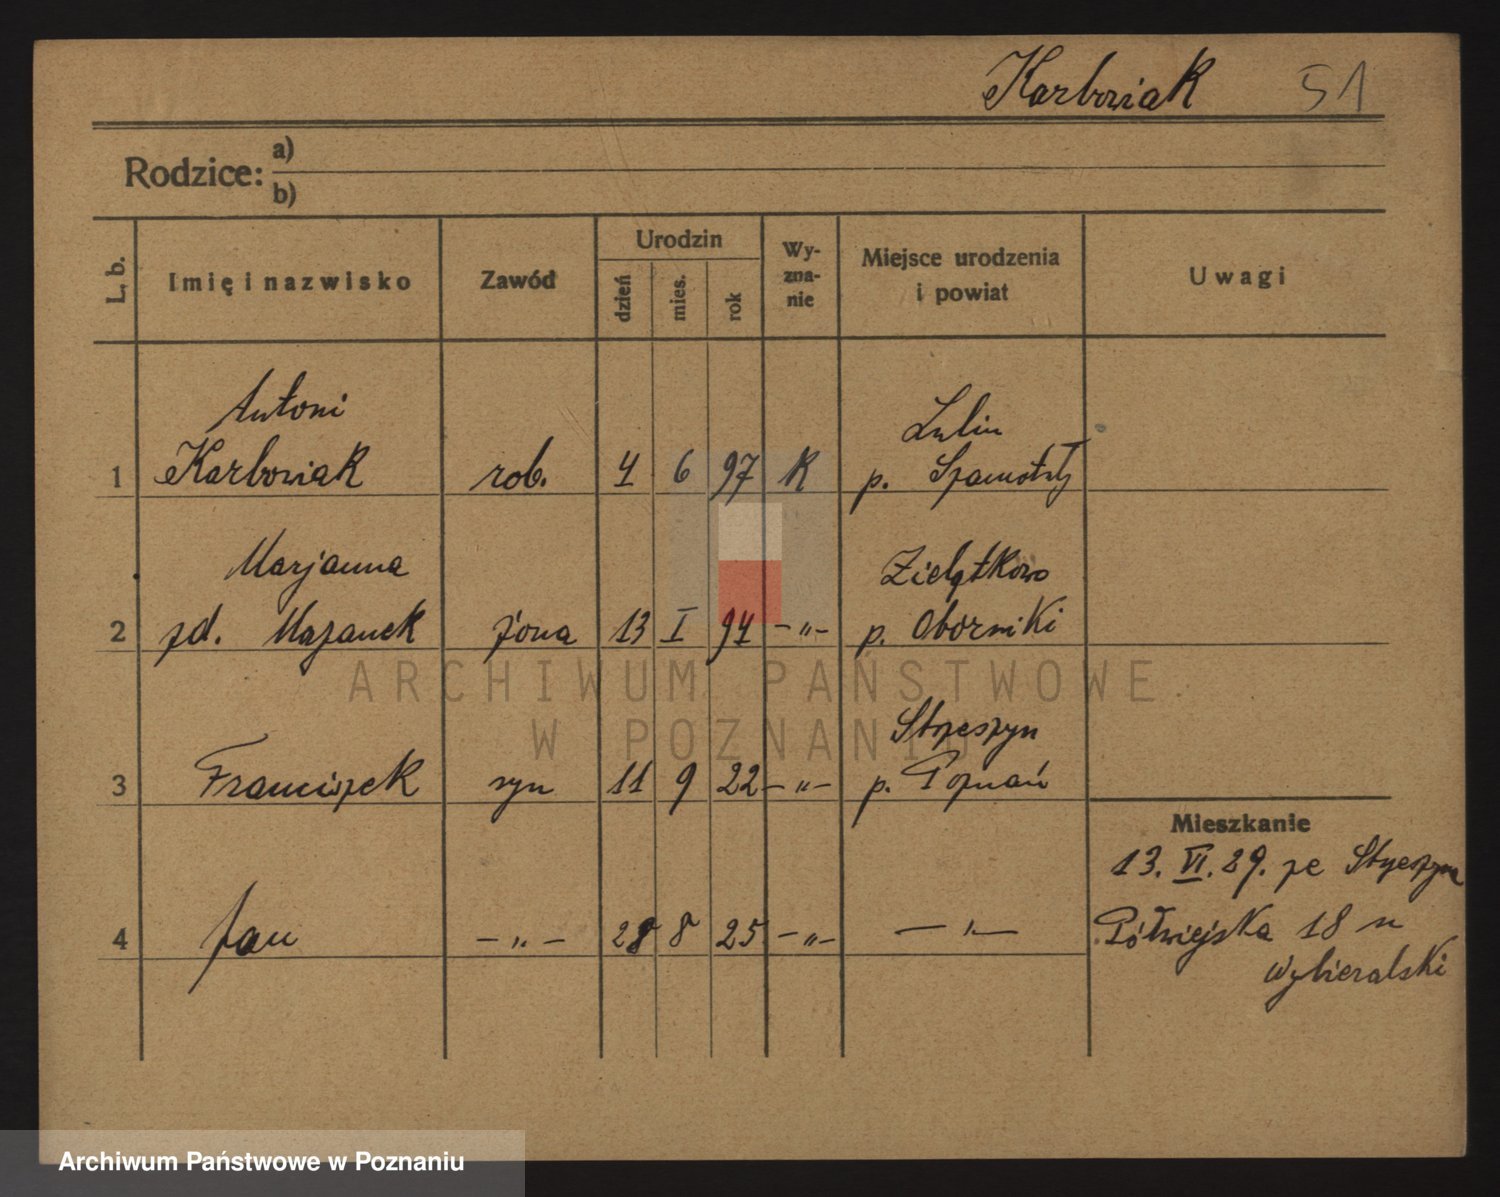 Karbowiak 51
Rodzice: a)
b)
L. b. Imię i nazwisko Zawód Urodzin dzień mies. rok Wy-zna-nie Miejsce urodzenia i powiat Uwagi
Antoni Lulin
1 Karbowiak rob. 4 6 97 K p. Szamotuły
Marjanna Zielątkowo
2 zd. Mazanek żona 13 I 94 –„– p. Oborniki
Strzeszyn
3 Franciszek syn 11 9 22 –„– p. Poznań
4 Jan –„– 28 8 25 –„– –„–
Mieszkanie
13. VI. 29. ze Strzeszyna
Półwiejska 18 u
Wybieralski
ARCHIWUM PAŃSTWOWE
W POZNANIU
Archiwum Państwowe w Poznaniu